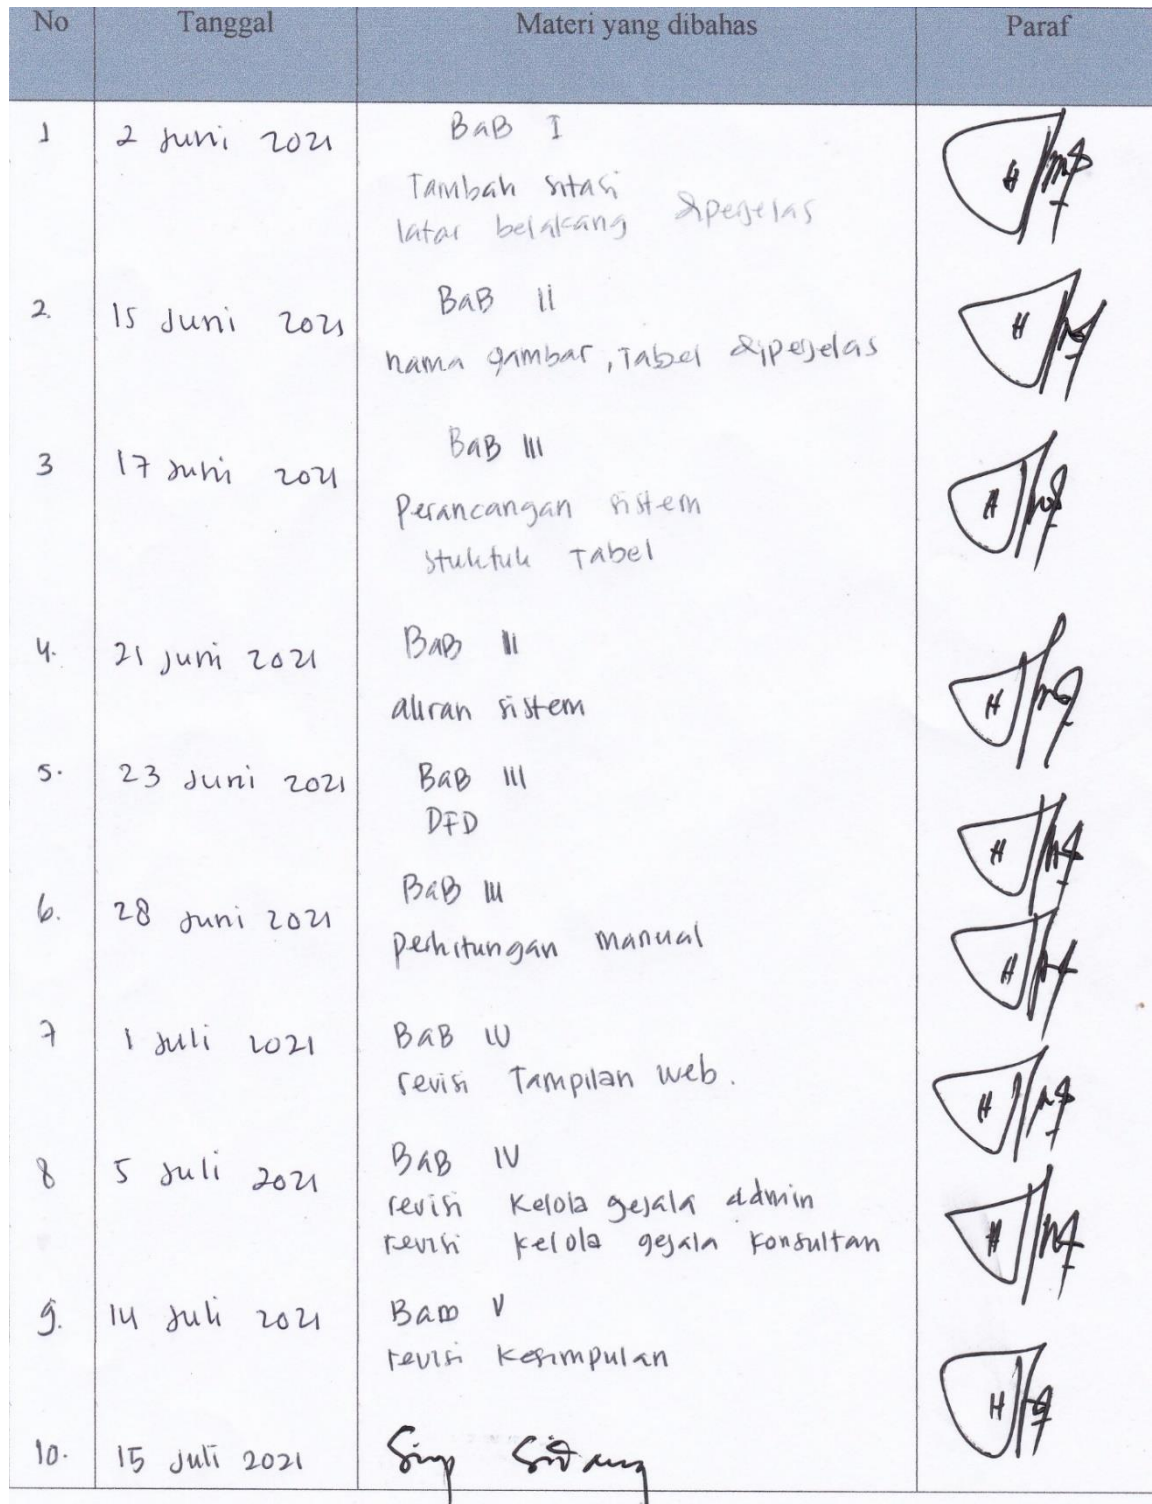 No Tanggal Materi yang dibahas Paraf
1 2 Juni 2021 BaB I
Tambah sitasi
latar belakang diperjelas
2. 15 Juni 2021 BaB II
nama gambar, Tabel diperjelas
3 17 Juni 2021 BaB III
Perancangan sistem
stuktuk Tabel
4. 21 Juni 2021 BaB II
aliran sistem
5. 23 Juni 2021 BaB III
DFD
6. 28 Juni 2021 BaB III
perhitungan manual
7 1 Juli 2021 BaB IV
revisi Tampilan web.
8 5 Juli 2021 BaB IV
revisi Kelola gejala admin
revisi kelola gejala konsultan
9. 14 Juli 2021 Bab V
revisi Kesimpulan
10. 15 Juli 2021 Siap Sidang